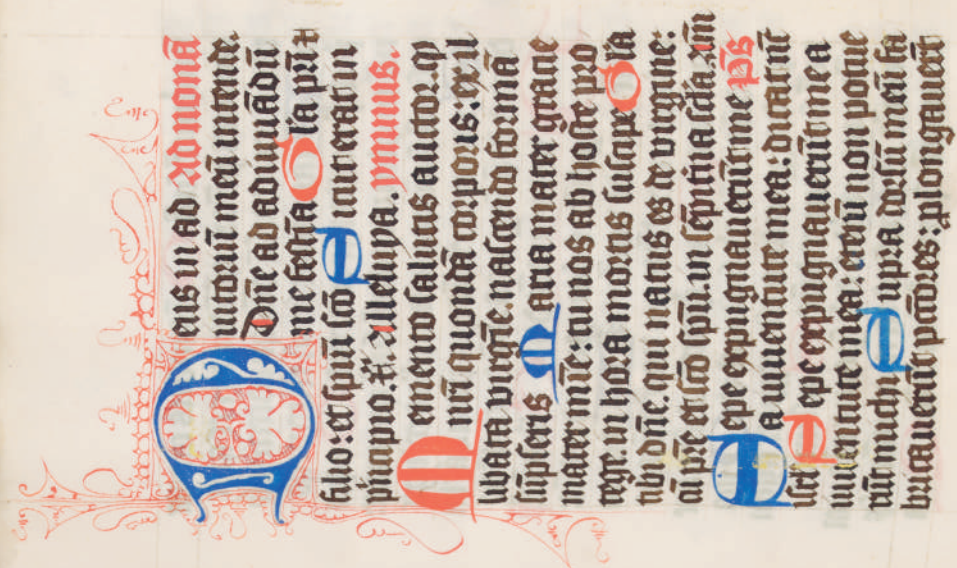 Ad nonā
Deus in ad
iutoriū meū intende.
Dñe ad adiuuādū
me festina. Gl'ia pr̄i ⁊
filio: et spūi scō Sicut erat in
pͥncipio. Aē. Alleluya. ymnus.
Memento salutis auctor. qͥ
nr̄i quondā corporis: ex il
libata virgīe. nascendo formā
sūpseris Maria mater gracie
mater mīe: tu nos ab hoste pro
tege. in hora mortis suscipe Gl'ia
tibi dñe. qui natus es de virgine:
cū pr̄e et scō spū. in sēpiterna scla. añ
Sepe expugnauerūt me pš
a iuuentute mea: dicat nūc
isrl' Sepe expugnauerūt me a
iuuentute mea: etenī non potue
rūt michi Supra dorsū meū fa
bricauerūt pctōres: ꝓlongauerūt